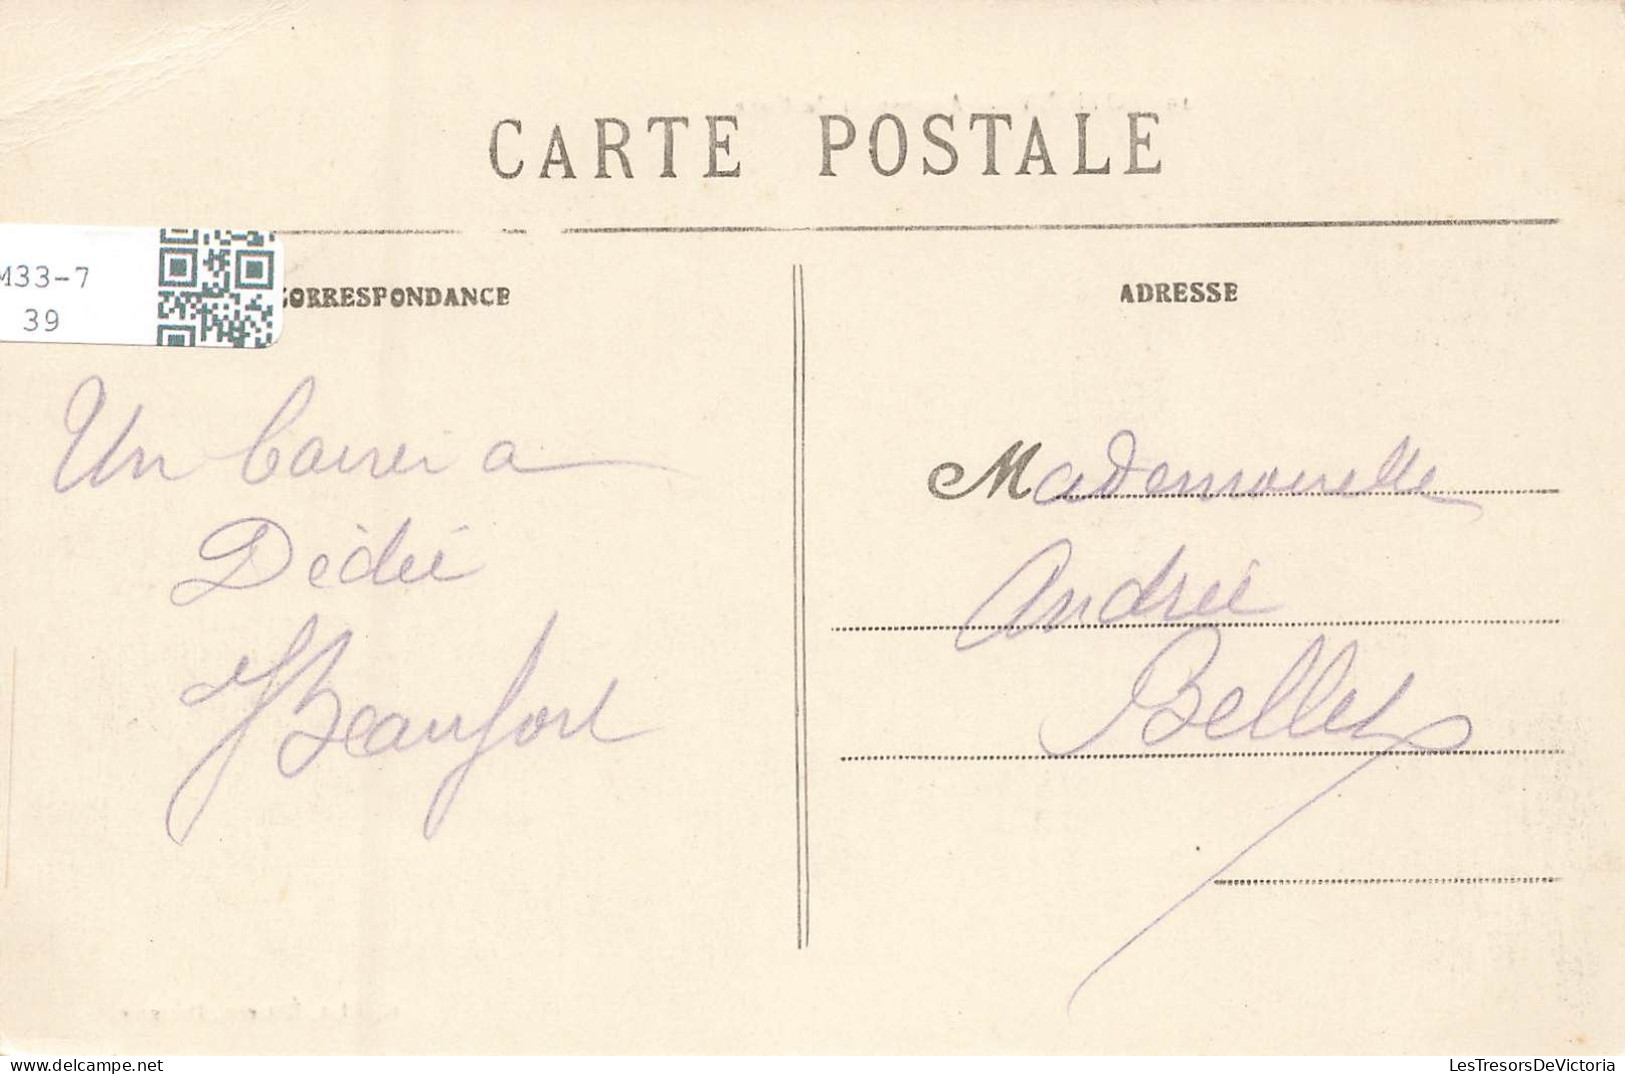 CARTE POSTALE
M33-7
39
CORRESPONDANCE
ADRESSE
Un baiser a
Dédée
Beaufort
Mademoiselle
Andrée
Bellet
LesTresorsDeVictoria
delcampe.net